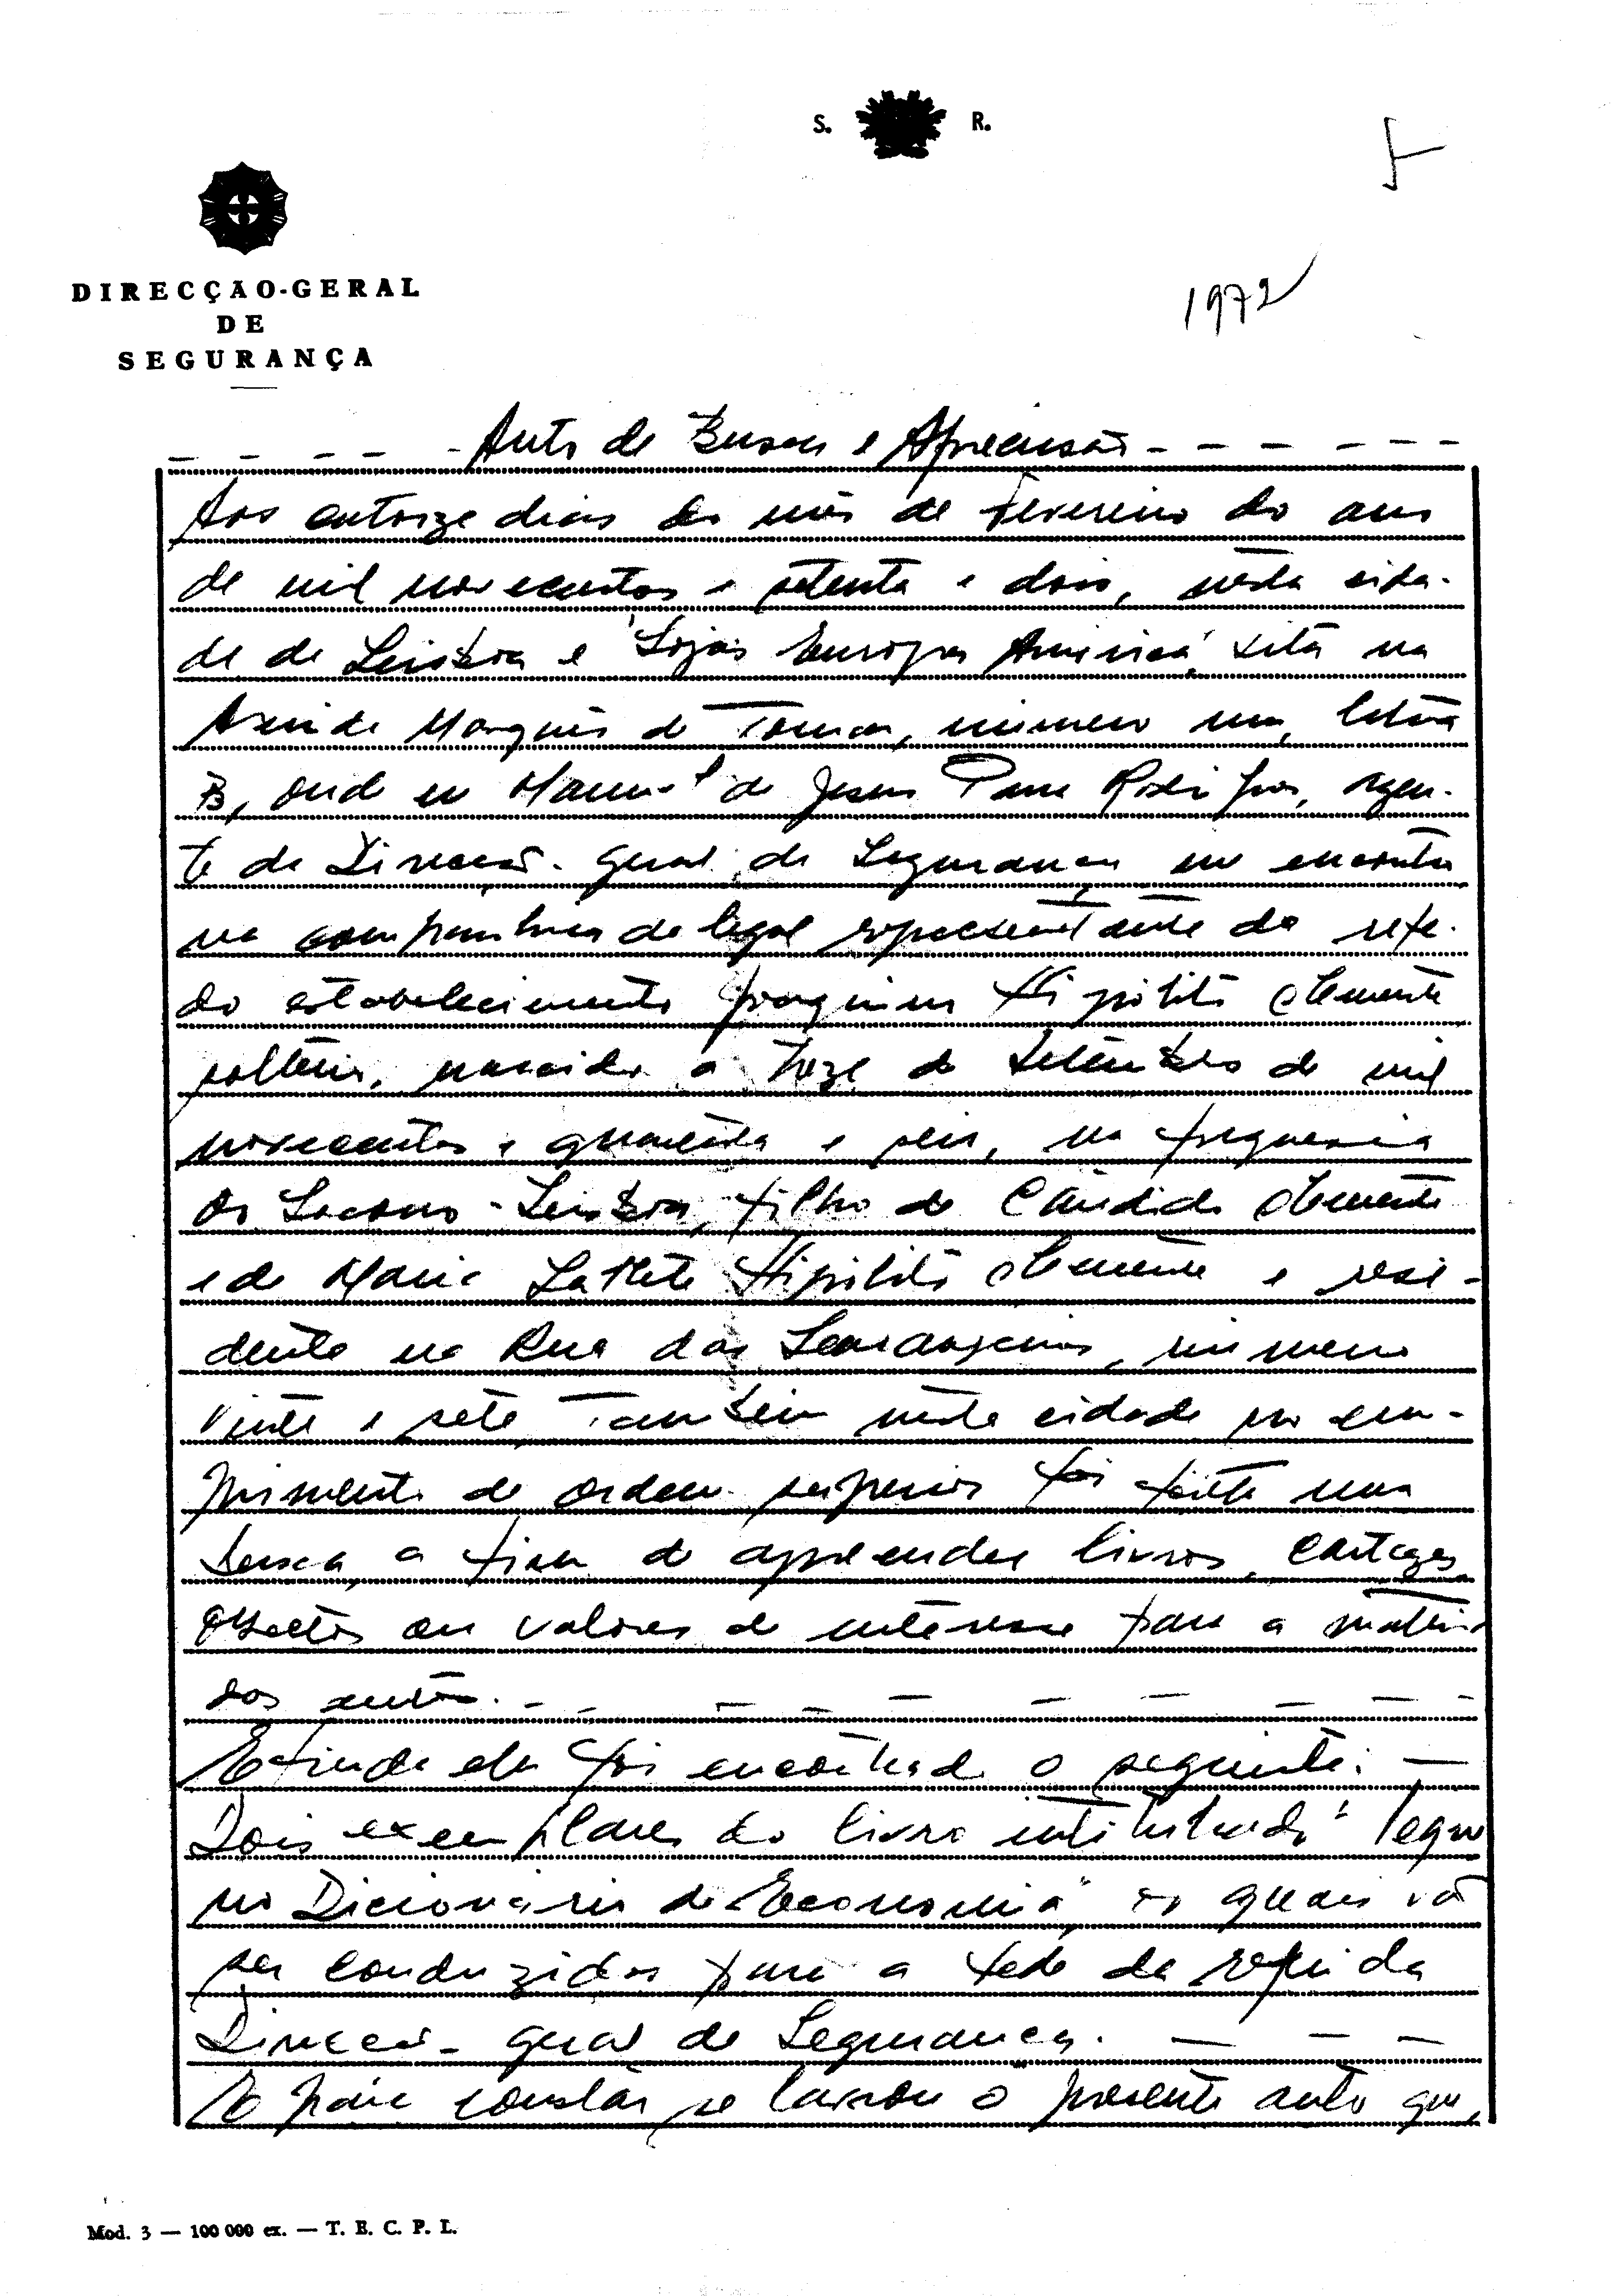 S. R.
5
DIRECÇÃO-GERAL
DE
SEGURANÇA
1972
Auto de Busca e Apreensão
Aos catorze dias do mês de Fevereiro do ano
de mil novecentos e setenta e dois, nesta cida-
de de Lisboa e "Lojas Europa América", sita na
Marquês de Tomar, número um, letra
B, onde eu Manuel de Jesus Rodrigues, agen-
te da Direcção-Geral de Segurança me encontra
na companhia do legal representante do refe-
do estabelecimento Joaquim Hipólito Clemente
solteiro, nascido a treze de Setembro de mil
novecentos e quarenta e seis, na freguesia
do Socorro-Lisboa, filho de Cândido Clemente
e de Maria Hipólito Clemente e resi-
dente na Rua das Laranjeiras, número
vinte e sete também nesta cidade no cum-
primento de ordem superior foi feita uma
busca, a fim de apreender livros, cartazes
objectos ou valores de interesse para a matéria
dos autos.
E finda ela foi encontrado o seguinte:
Dois exemplares do livro intitulado "Peque
no Dicionário de Economia", os quais vão
ser conduzidos para a sede da referida
Direcção-Geral de Segurança.
E para constar se lavrou o presente auto que,
Mod. 3 — 100 000 ex. — T. E. C. P. L.